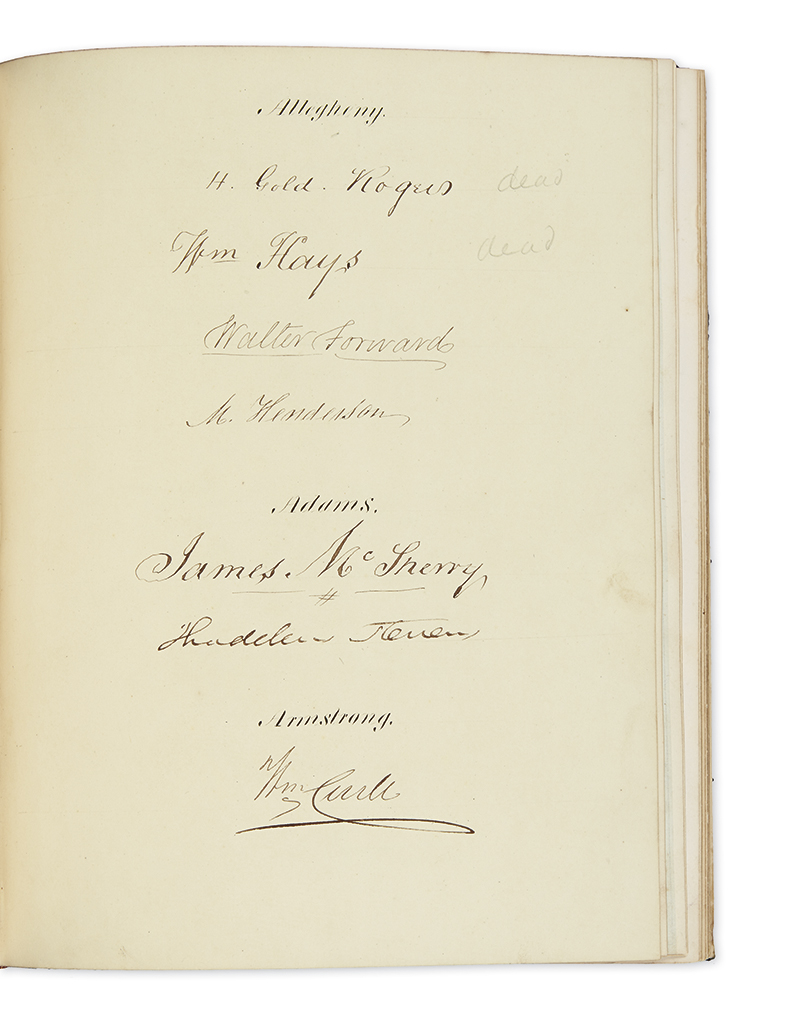 Allegheny.
H. Gold. Rogers dead
Wm Hays dead
Walter Forward
M. Henderson
Adams.
James Mc Sherry
#
Thaddeus Stevens
Armstrong.
Wm Curll